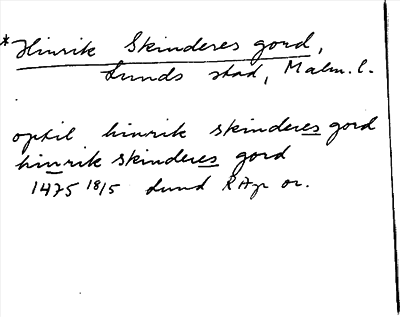 *Hinrik Skinderes gord,
Lunds stad, Malm. l.
optil hinrik skinderes gord
hinrik skinderes gord
1475 18/5 Lund RAp or.